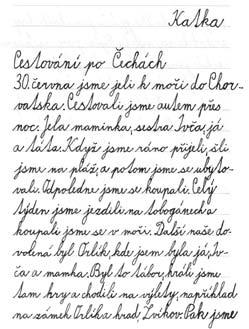 Katka
Cestování po Čechách
30. června jsme jeli k moři do Chor-
vatska. Cestovali jsme autem přes
noc. Jela maminka, sestra Ivča, já
a táta. Když jsme ráno přijeli, šli
jsme na pláž, a potom jsme se ubyto-
vali. Odpoledne jsme se koupali. Celý
týden jsme jezdili na tobogánech a
koupali jsme se v moři. Další naše do-
volená byl Orlík, kde jsem byla já, Iv-
ča a mamka. Byl to tábor, hráli jsme
tam hry a chodili na výlety, například
na zámek Orlík a hrad Zvíkov. Pak jsme